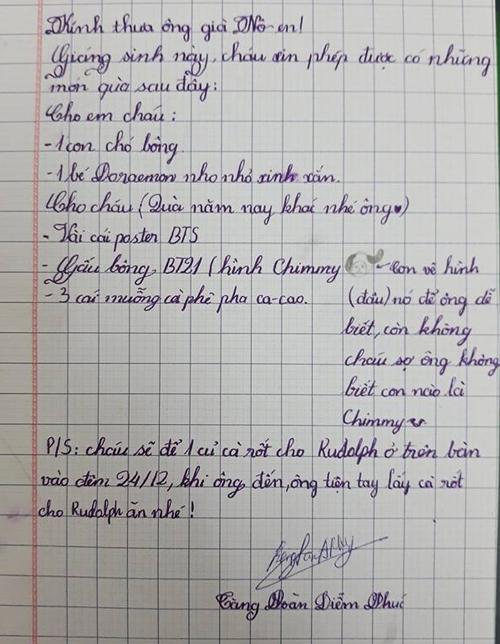 Kính thưa ông già Nô-en!
Giáng sinh này, cháu xin phép được có những
món quà sau đây:
Cho em cháu:
- 1 con chó bông.
- 1 bé Doraemon nho nhỏ xinh xắn.
Cho cháu (Quà năm nay khác nhé ông♥)
- Vài cái poster BTS
- Gấu bông, BT21 (hình Chimmy
- 3 cái muỗng cà phê pha ca-cao.
Con vẽ hình
(đầu) nó để ông dễ
biết, còn không
cháu sợ ông không
biết con nào là
Chimmy
P/S: cháu sẽ để 1 củ cà rốt cho Rudolph ở trên bàn
vào đêm 24/12, khi ông đến, ông tiện tay lấy cà rốt
cho Rudolph ăn nhé!
Tăng Đoàn Diễm Phúc